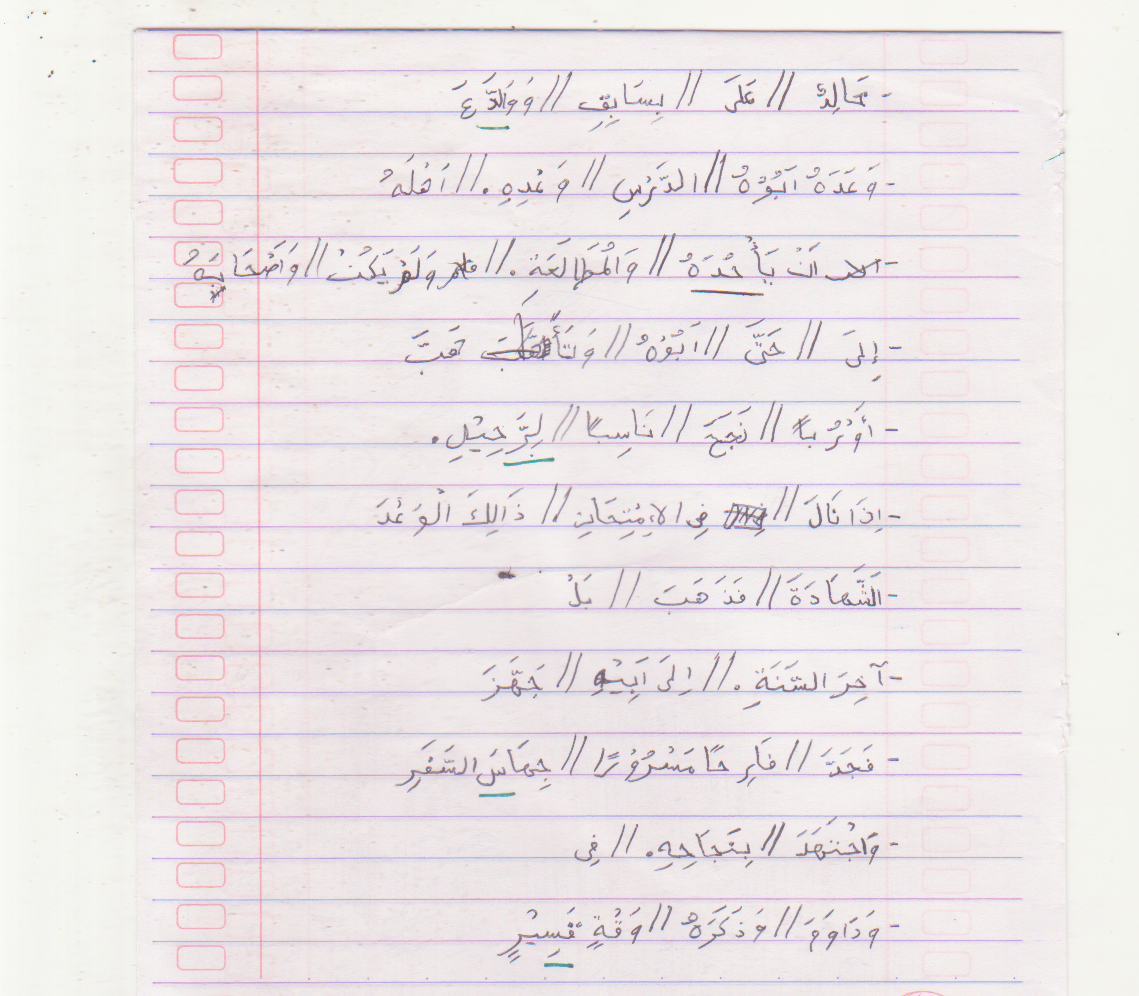 - خَالِدٌ // عَلَى // بِسَابِقِ // وَوَالدَّعَ
- وَعَدَهُ اَبُوْهُ // الدَّرْسِ // وَعْدِهِ . // اَهْلَهُ
- اَنْ يَأْخُدَهُ // وَالْمُطَالَعَةِ . // وَلَمْ يَكُنْ // وَاَصْحَابَهُ
- إِلَى // حَتَّى // اَبُوْهُ // وَتَأَ هَبَّ
- أَوْرُبَّا // نَجَحَ // نَاسِبًا // لِرَّحِيْلِ .
- اِذَا نَالَ // فِى الاِمْتِحَانِ // ذَالِكَ الْوَعْدَ
- الشَّهَادَةَ // فَذَهَبَ // بَلْ
- آخِرَ السَّنَةِ . // اِلَى اَبِيْهِ // جَهَّزَ
- فَجَدَّ // فَارِحًا مَسْرُوْرًا // جِهَاسَ السَّفَرِ
- وَاجْتَهَدَ // بِنَجَاحِهِ . // فِى
- وَدَاوَمَ // وَذَكَرَهُ // وَقْةٍ قَسِيْرٍ